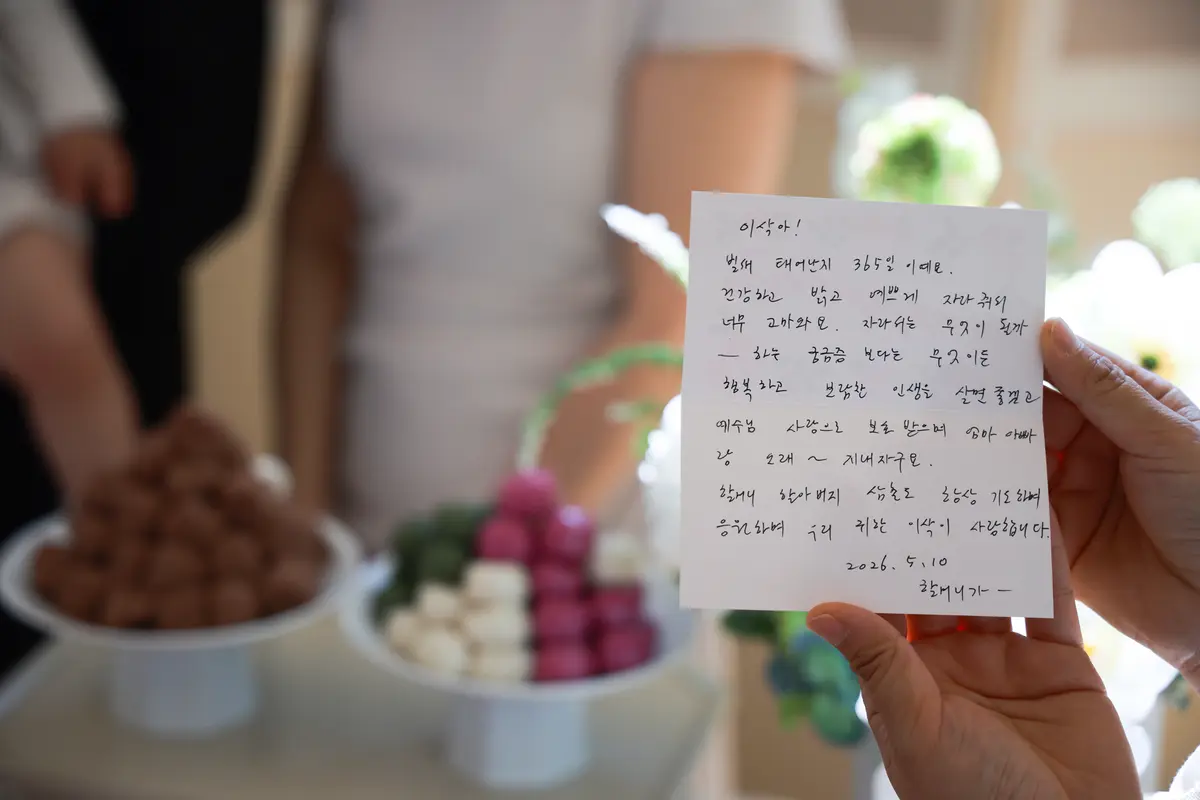 이삭아!
벌써 태어난지 365일 이예요.
건강하고 밝고 예쁘게 자라줘서
너무 고마와요. 자라서는 무엇이 될까
— 하는 궁금증 보다는 무엇이든
행복하고 보람찬 인생을 살면 좋겠고
예수님 사랑으로 보호 받으며 엄마 아빠
랑 오래 ~ 지내자구요.
할머니 할아버지 삼촌도 항상 기도하며
응원하며 우리 귀한 이삭이 사랑합니다.
2026. 5. 10
할머니가 —